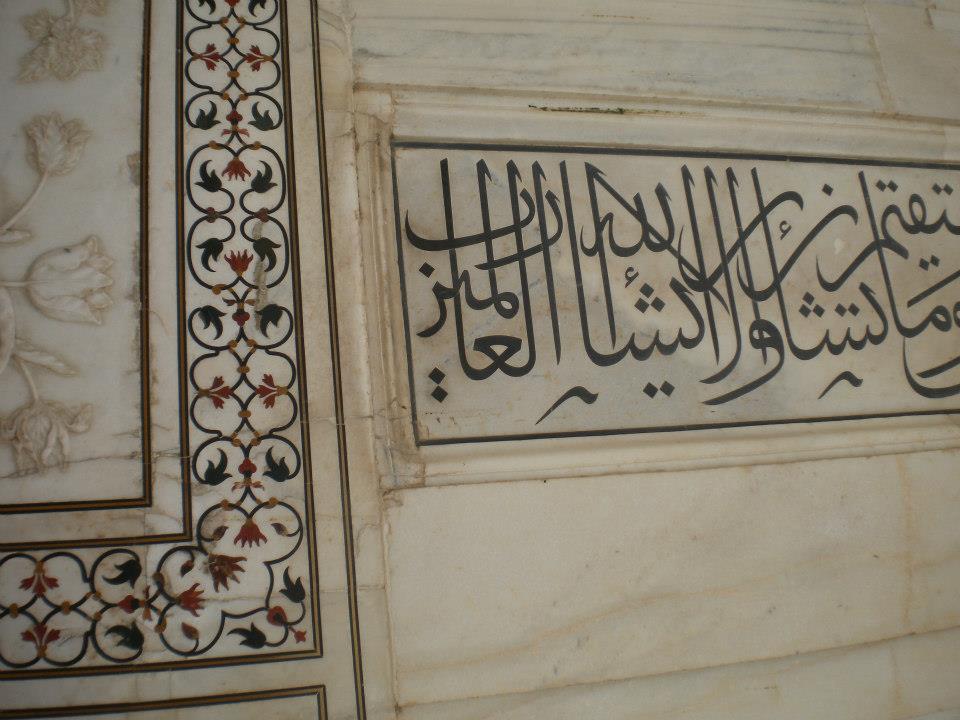 ستقيم وما تشاؤن الا ان يشاء الله رب العلمين